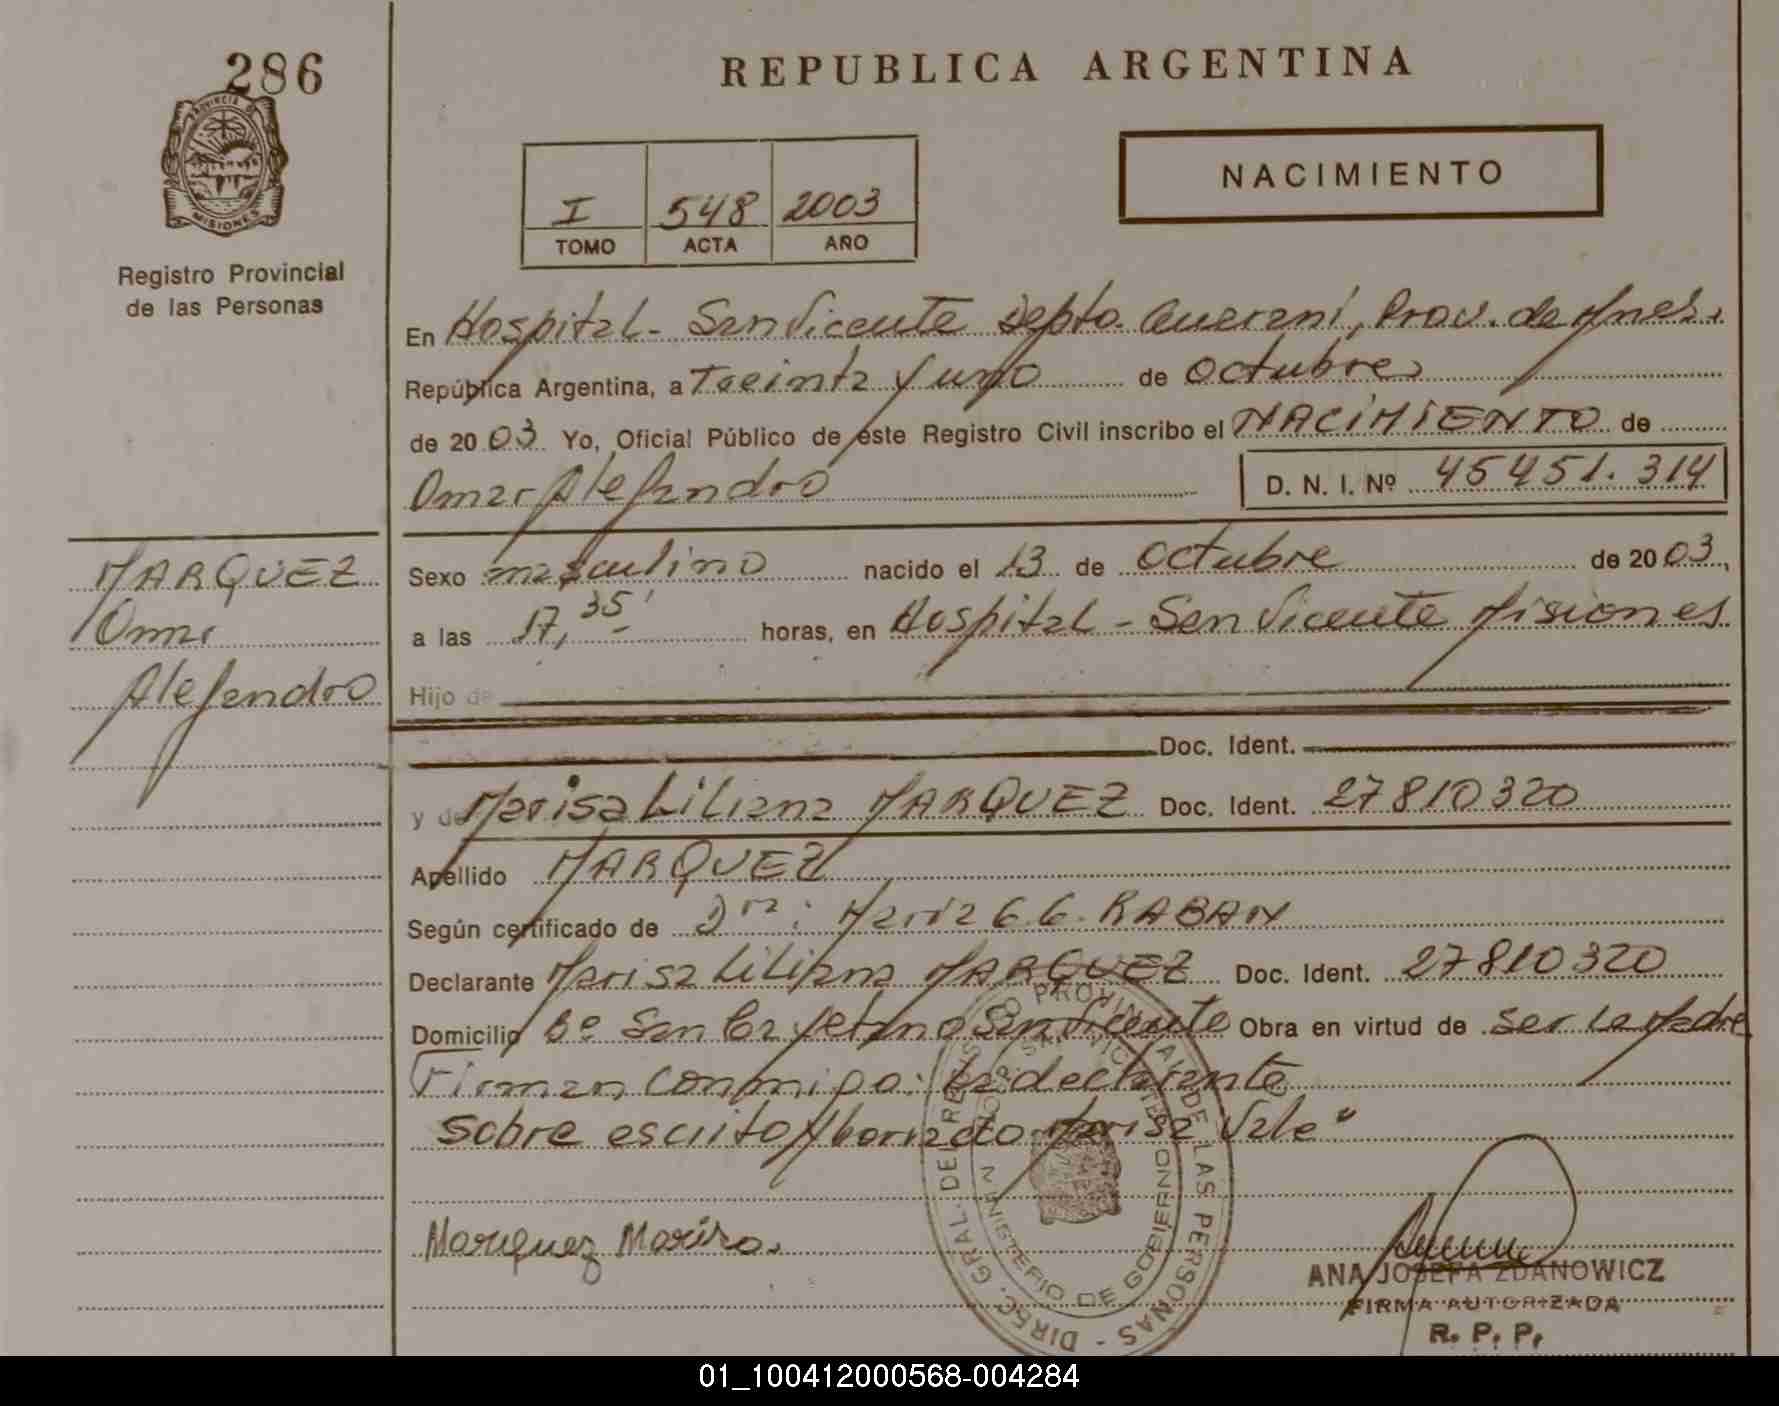 286
PROVINCIA DE
MISIONES
Registro Provincial
de las Personas
REPUBLICA ARGENTINA
NACIMIENTO
I 548 2003
TOMO ACTA AÑO
En Hospital - San Vicente Depto. Guarani, Prov. de Mnes.
República Argentina, a Treinta y uno de Octubre
de 2003 Yo, Oficial Público de este Registro Civil inscribo el NACIMIENTO de
Omar Alejandro D. N. I. Nº 45451.314
MARQUEZ
Omar
Alejandro
Sexo masculino nacido el 13 de Octubre de 2003,
a las 17,35' horas, en Hospital - San Vicente Misiones
Hijo de
Doc. Ident.
y de Marisa Liliana MARQUEZ Doc. Ident. 27810320
Apellido MARQUEZ
Según certificado de Dra: Maria G.G. RABAN
Declarante Marisa Liliana MARQUEZ Doc. Ident. 27810320
Domicilio Bº San Cayetano San Vicente Obra en virtud de ser la Madre
Firman conmigo: la declarante
Sobre escrito y borrado Marisa Vale"
DIREC. GRAL. DEL REGISTRO PROVINCIAL DE LAS PERSONAS
MINISTERIO DE GOBIERNO
SAN VICENTE
Marquez Marisa.
ANA JOSEFA ZDANOWICZ
FIRMA AUTORIZADA
R. P. P.
01_100412000568-004284